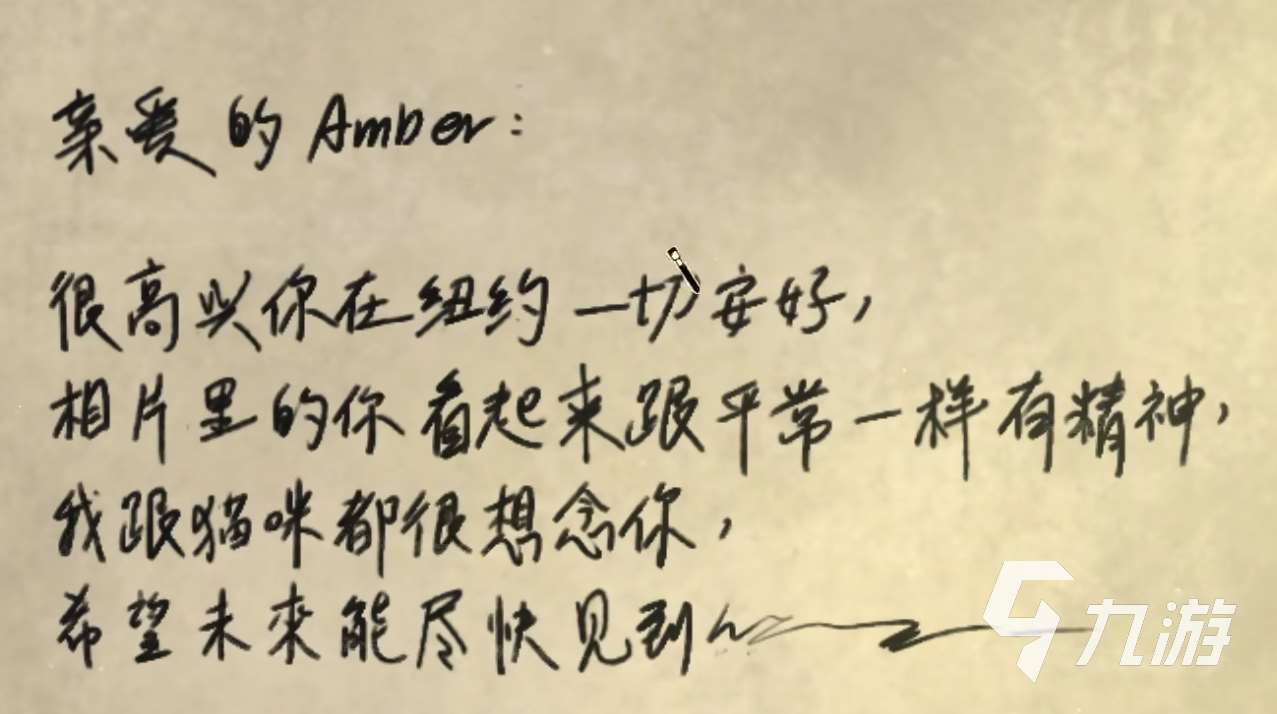 亲爱的 Amber:
很高兴你在纽约一切安好,
相片里的你看起来跟平常一样有精神,
我跟猫咪都很想念你,
希望未来能尽快见到
九游